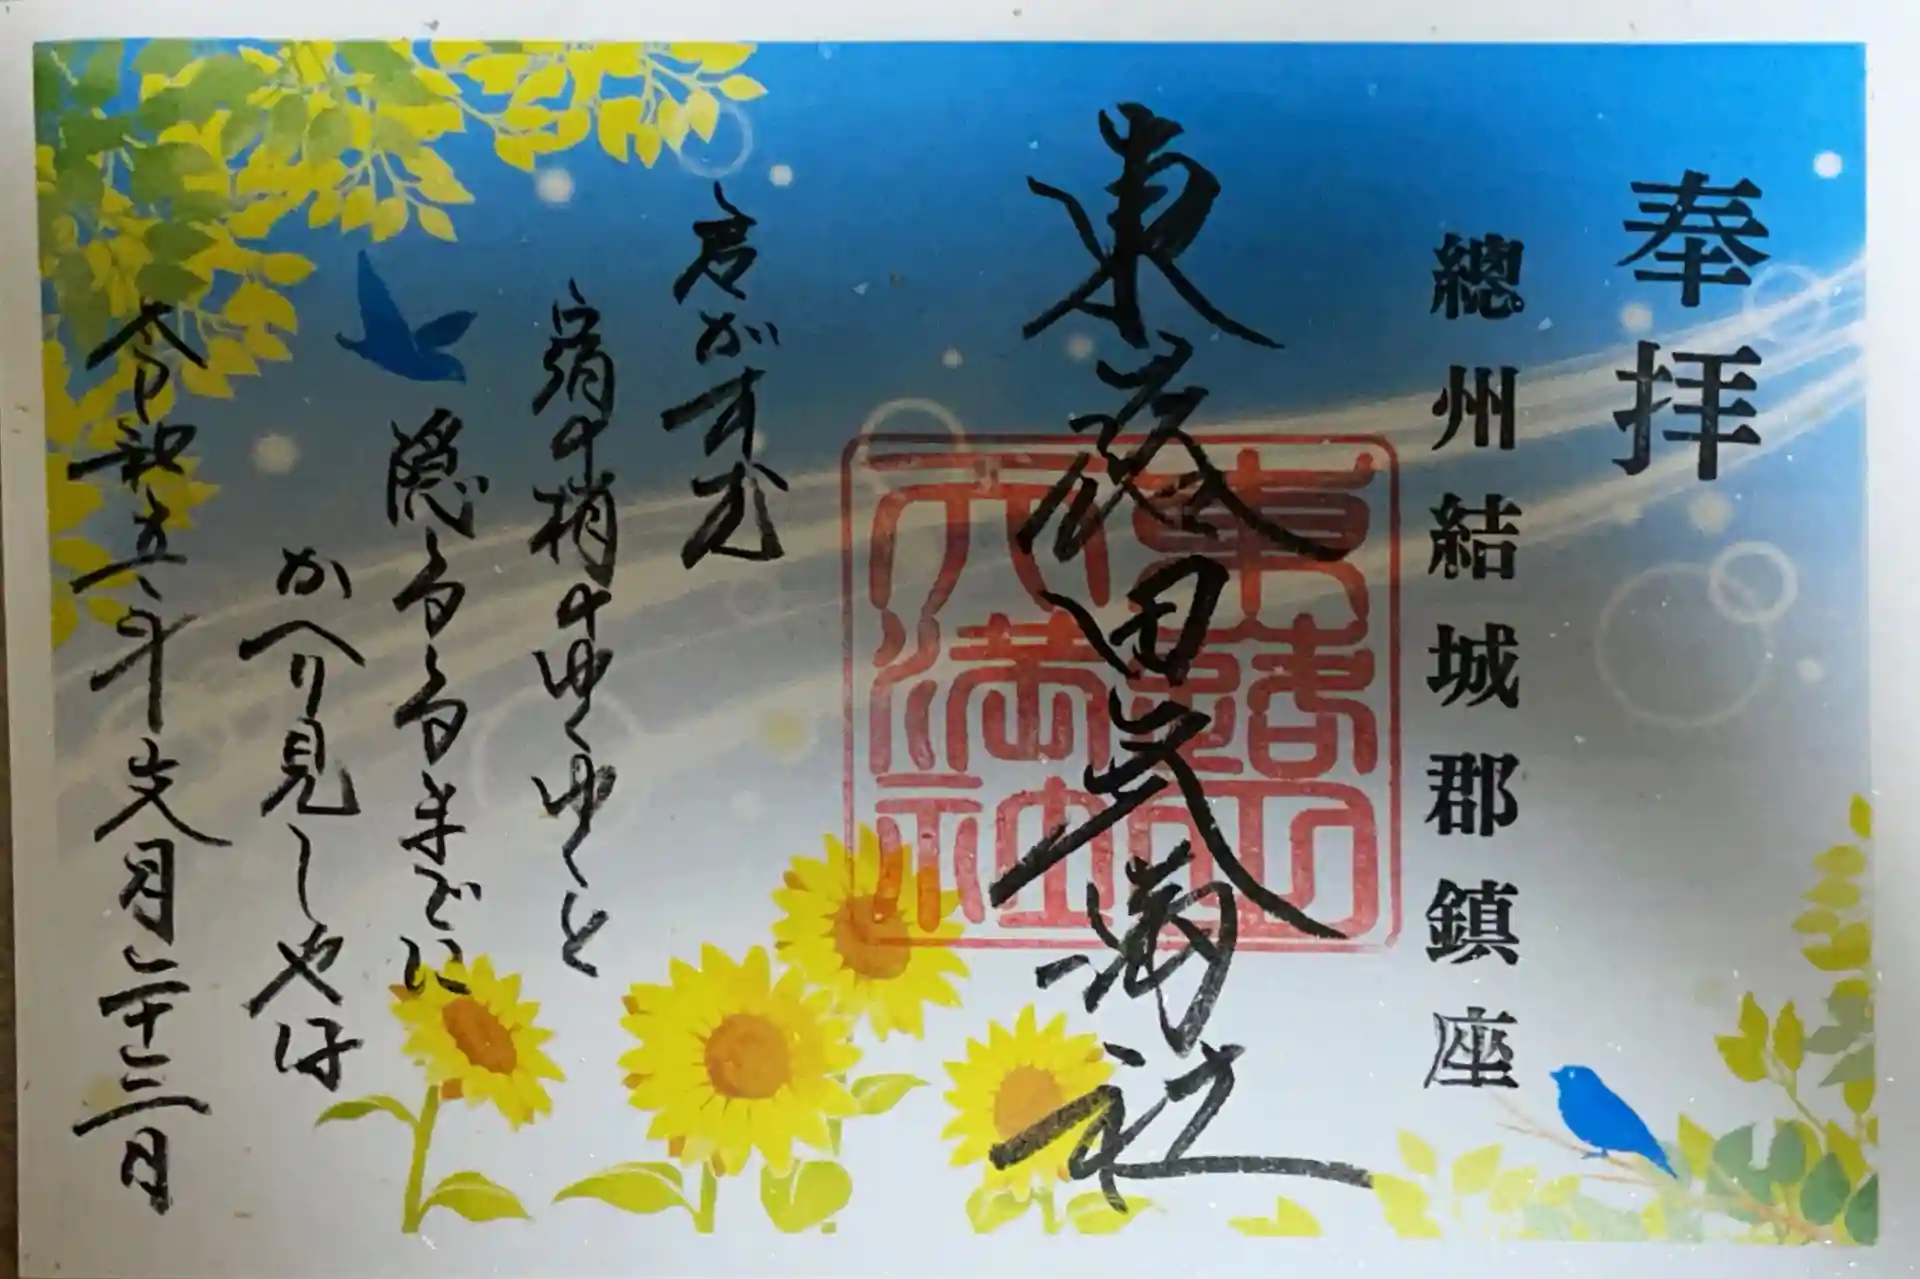 奉拝
總州結城郡鎮座
東蕗田天満社
東蕗田
天満社
君がすむ
宿の梢のゆくゆくと
隠るるまでに
かへり見しやは
令和五年文月二十二日